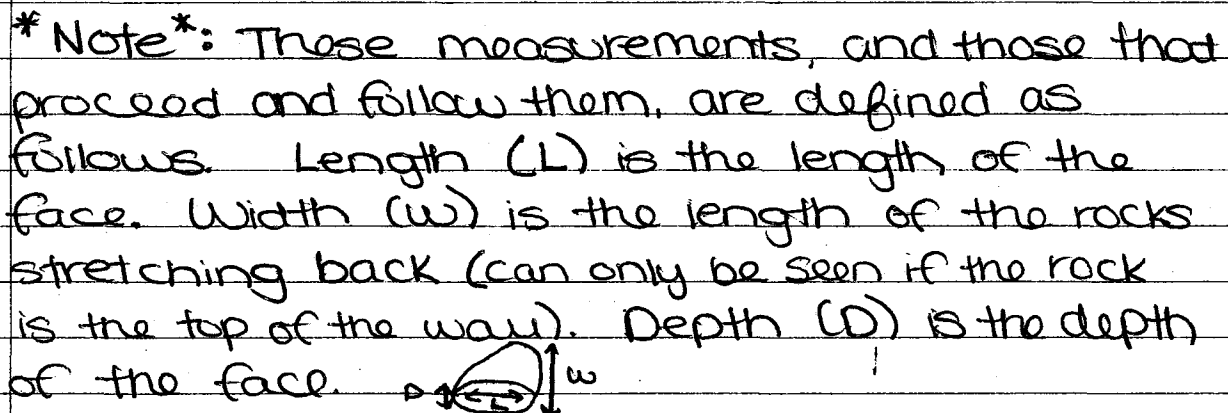 *Note*: These measurements, and those that
proceed and follow them, are defined as
follows. Length (L) is the length of the
face. Width (W) is the length of the rocks
stretching back (can only be seen if the rock
is the top of the wall). Depth (D) is the depth
of the face. D L W